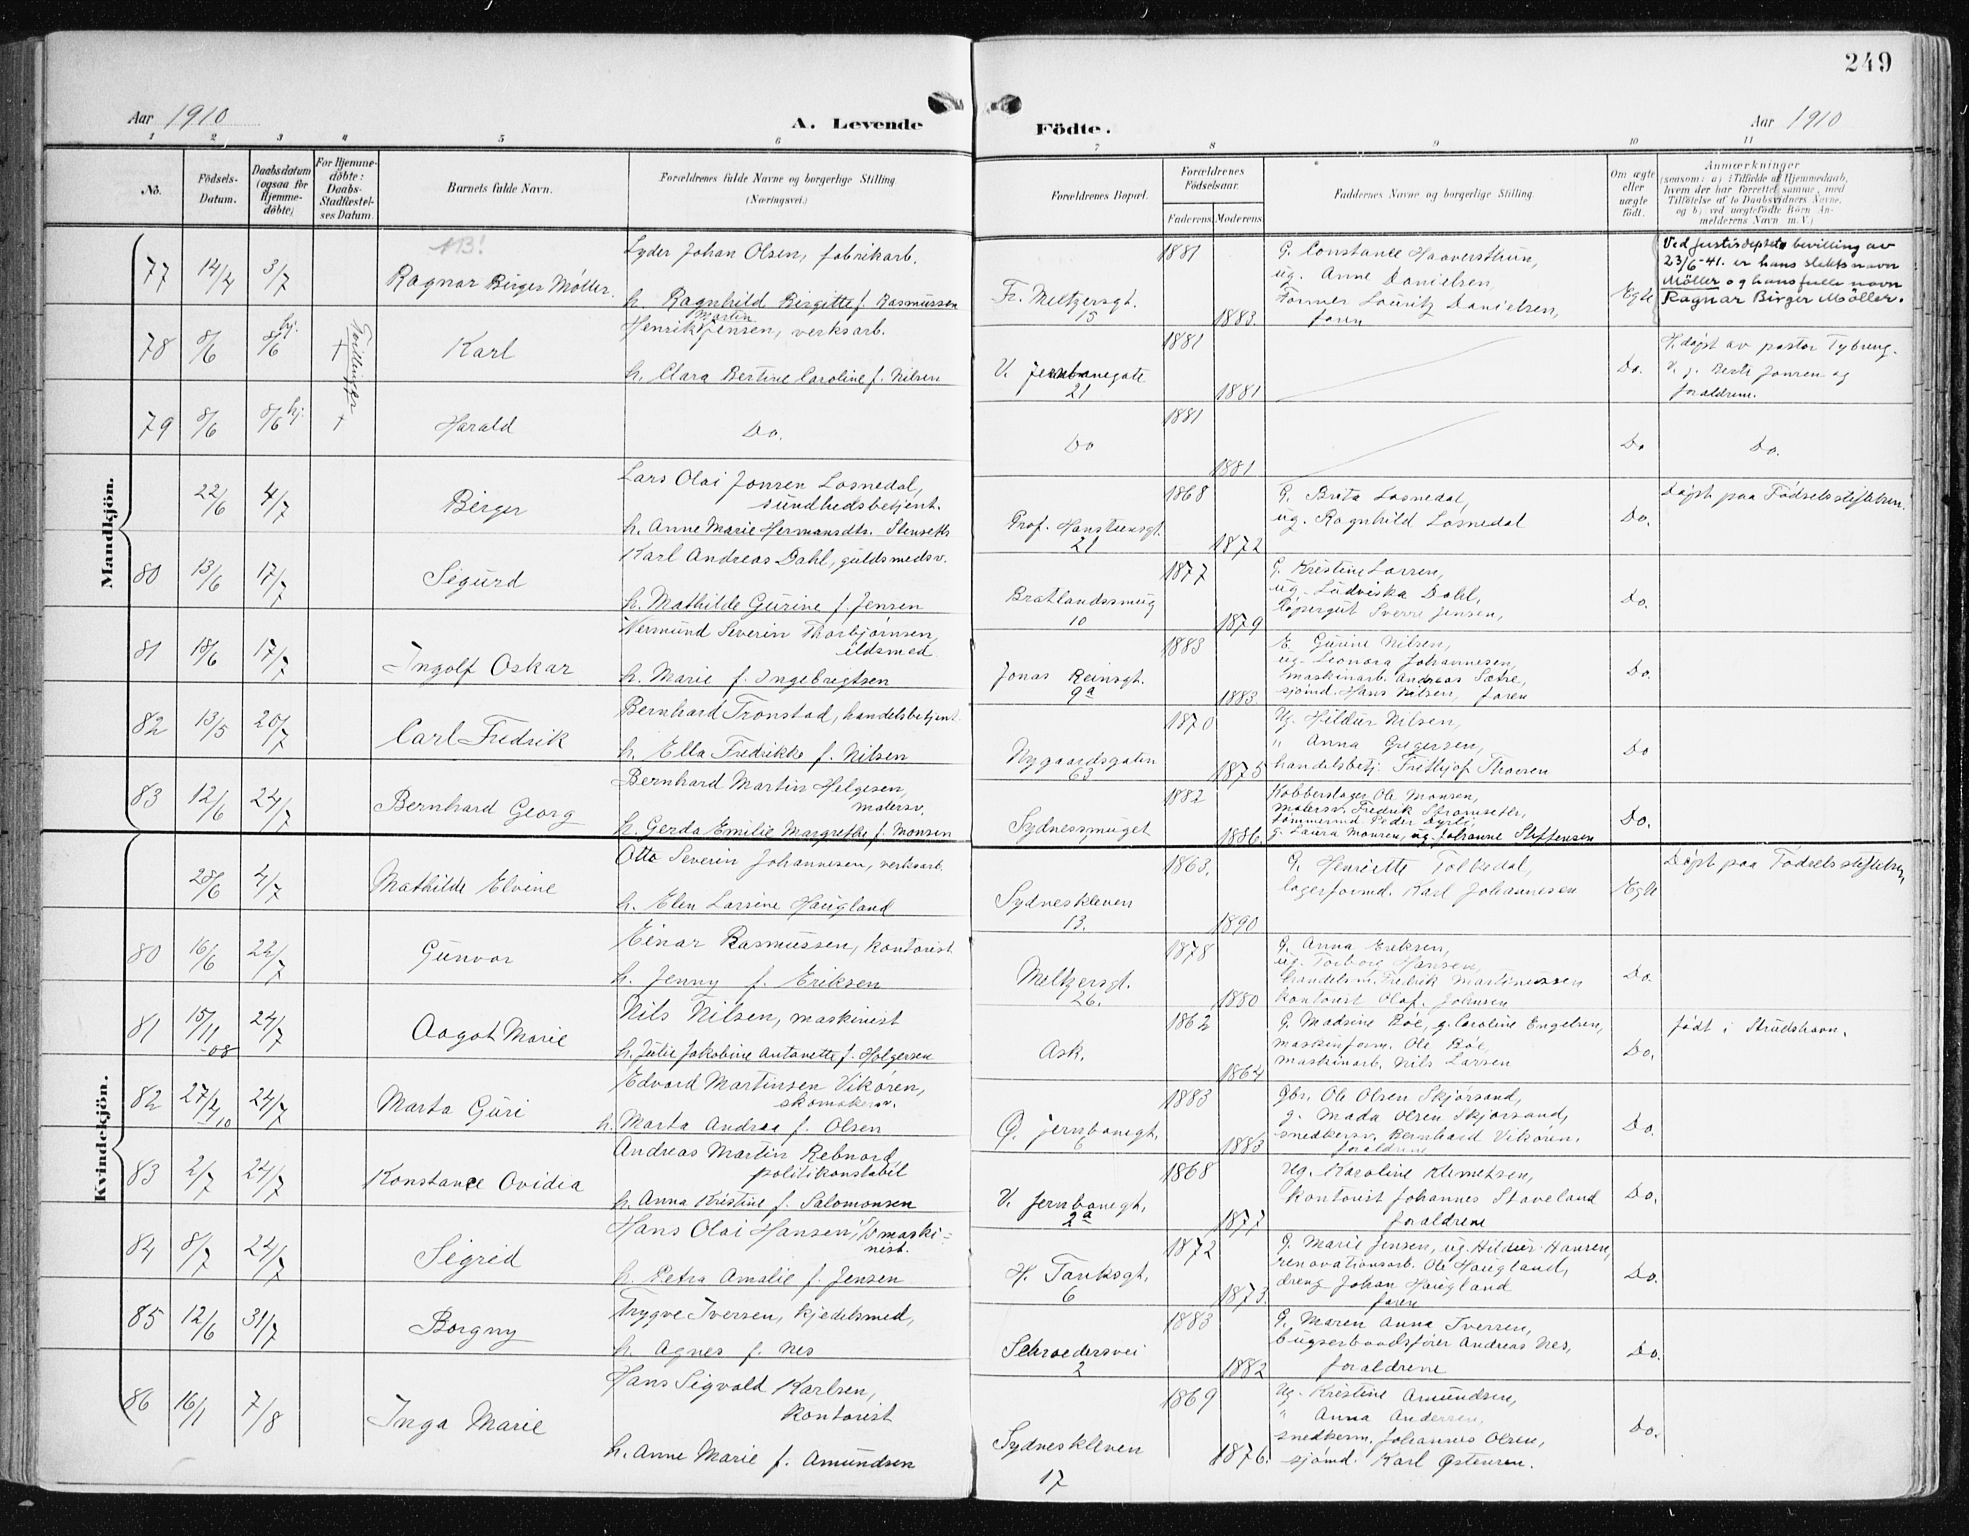 249
Aar 1910
A. Levende Födte.
Aar 1910
1 2 3 4 5 6 7 8 9 10 11
No.
Födsels-Datum.
Daabsdatum (ogsaa for Hjemme-döbte)
For Hjemme-döbte: Daabs-Stadfæstel-ses Datum.
Barnets fulde Navn.
Forældrenes fulde Navne og borgerlige Stilling (Næringsvei.)
Forældrenes Bopæl.
Forældrenes Födselsaar.
Faderens Moderens
Faddernes Navne og borgerlige Stilling.
Om ægte eller uægte födt.
Anmærkninger
(saasom: a) i Tilfælde af Hjemmedaab,
hvem der har forrettet samme, med
Tilföielse af to Daabsvidners Navne,
og b) ved uægtefödte Börn An-
melderens Navn m. V.)
Mandkjön.
NB!
77 14/4 3/7 Ragnar Birger Møller
Lyder Johan Olsen, fabrikarb.
h. Ragnhild Birgitte f. Rasmussen
Fr. Meltzersgt. 15
1881 1883
G. Constance Haaversthun,
ug. Anne Danielsen,
Former Louritz Danielsen,
faren
Egte
Ved justisdeptets bevilling av
23/6-41. er hans slektsnavn
Møller og hans fulle navn
Ragnar Birger Møller.
78 8/6 8/6 hj. + Tvillinger Karl
Henrik Martin Jensen, verksarb.
h. Clara Bertine Caroline f. Nilsen
V. Jernbanegate 21
1881 1881
Do.
H.døpt av pastor Tybring.
V. j. Berte Jonsen og
forældrene.
79 8/6 8/6 hj. + Harald
Do.
Do
1881 1881
Do
Do.
22/6 4/7 Birger
Lars Olai Jonsen Losnedal,
sundhedsbetjent.
h. Anne Marie Hermansdtr. Stenseth
Prof. Hansteensgt. 21
1868 1872
G. Brita Losnedal,
ug. Ragnhild Losnedal
Do.
Døpt paa Fødselsstiftelsen.
80 13/6 17/7 Sigurd
Karl Andreas Dahl, guldsmedsv.
h. Mathilde Gurine f. Jensen
Bratlandssmug 10
1877 1879
G. Kristine Larsen,
ug. Ludviska Dahl,
løpergut Sverre Jensen,
Do.
81 18/6 17/7 Ingolf Oskar
Vermund Severin Thorbjørnsen,
ildsmed
h. Marie f. Ingebrigtsen
Jonas Reinsgt. 9a
1883 1883
E. Gurine Nilsen,
ug. Leonora Johannesen,
maskinarb. Andreas Sætre,
sjømd. Hans Nilsen, faren
Do.
82 13/5 20/7 Carl Fredrik
Bernhard Tronstad, handelsbetjent
h. Ella Fredrikke f. Nilsen
Nygaardsgaten 63
1870 1875
Ug. Hildur Nilsen,
" Anna Gregersen,
handelsbetj. Frithjof Thorsen
Do
83 12/6 24/7 Bernhard Georg
Bernhard Martin Helgesen,
malersv.
h. Gerda Emilie Margrethe f. Monsen
Sydnessmuget
1882 1886
Kobberslager Ole Monsen,
malersv. Fredrik Strømseth,
tømmermd. Peder Dyrli,
g. Laura Monsen, ug. Johanne Steffensen
Do.
Kvindekjön.
25/6 4/7 Mathilde Elvine
Otto Severin Johannesen, verksarb.
h. Elen Larsine Haugland
Sydneskleven 13.
1863. 1890
G. Henriette Tolkedal,
lagerformd. Karl Johannesen
Egte
Døpt paa Fødselsstiftelsen,
80 16/6 22/7 Gunvor
Einar Rasmussen, kontorist
h. Jenny f. Eriksen
Meltzersgt. 26.
1878 1880
G. Anna Eriksen,
ug. Torborg Hansen,
handelsm. Fredrik Martinussen
kontorist Olaf Johnsen
Do.
81 15/11 -08 24/7 Aagot Marie
Nils Nilsen, maskinist
h. Julie Jakobine Antonette f. Holgersen
Ask.
1862 1864
G. Madsine Bøe, g. Caroline Engelsen,
maskinform. Ole Bøe,
maskinarb. Nils Larsen
Do.
født i Strudshavn.
82 27/4 10 24/7 Marta Guri
Edvard Martinsen Vikøren,
skomakersv.
h. Marta Andrea f. Olsen
Ø. Jernbanegt, 6
1883 1883
Gbr. Ole Olsen Skjørsand,
g. Mada Olsen Skjørsand,
snedkersv. Bernhard Vikøren,
forældrene
Do.
83 2/7 24/7 Konstance Ovidia
Andreas Martin Rebnord
politikonstabel
h. Anna Kristine f. Salomonsen
V. Jernbanegt, 2a
1868 1877
Ug. Karoline Klemetsen,
kontorist Johannes Staveland
forældrene
Do.
84 8/7 24/7 Sigrid
Hans Olai Hansen, maski-
nist.
h. Petra Amalie f. Jensen
H. Tanksgt, 6
1872 1873
G. Marie Jensen, ug. Hildur Hansen,
renovationsarb. Ole Haugland,
dreng Johan Haugland
faren
Do.
85 12/6 31/7 Borgny
Trygve Iversen, kjedelsmed,
h. Agnes f. Nes
Schroedersvei 2
1883 1882
G. Maren Anna Iversen,
bugserbaadsfører Andreas Nes,
forældrene
Do.
86 16/1 7/8 Inga Marie
Hans Sigvald Karlsen,
kontorist
h. Anne Marie f. Amundsen
Sydneskleven 17
1869 1876.
Ug. Kristine Amundsen,
" Anna Andersen,
snedkerm. Johannes Olsen,
sjømd. Karl Østensen.
Do.